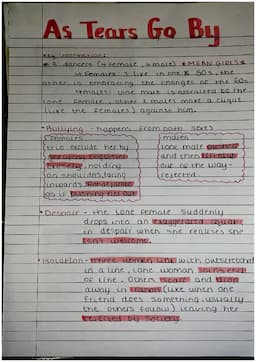 As Tears Go By
Key Information:
* 8 dancers (4 female, 4 male) * MEAN GIRLS *
4 Females: 3 live in the 50s, the
other is embracing the changes of the 60s
4 males: One male is attracted to the
lone female, other 3 males make a clique
(like the females) against him.
* Bullying - happens from both sexes
females
trio exclude her by
grouping together
closely, holding
on shoulders, facing
inwards
as if pushing her out
males
lone male
and then
out of the way-
rejected.
* Despair - the lone female suddenly
drops into an exaggerated
in despair when she realises she
isn't welcome.
* Isolation - three women link with outstretched
in a line, lone woman joins end
of line. Others and drop
away in canon (like when one
friend does something, usually
the others follow) leaving her
rejected by society.